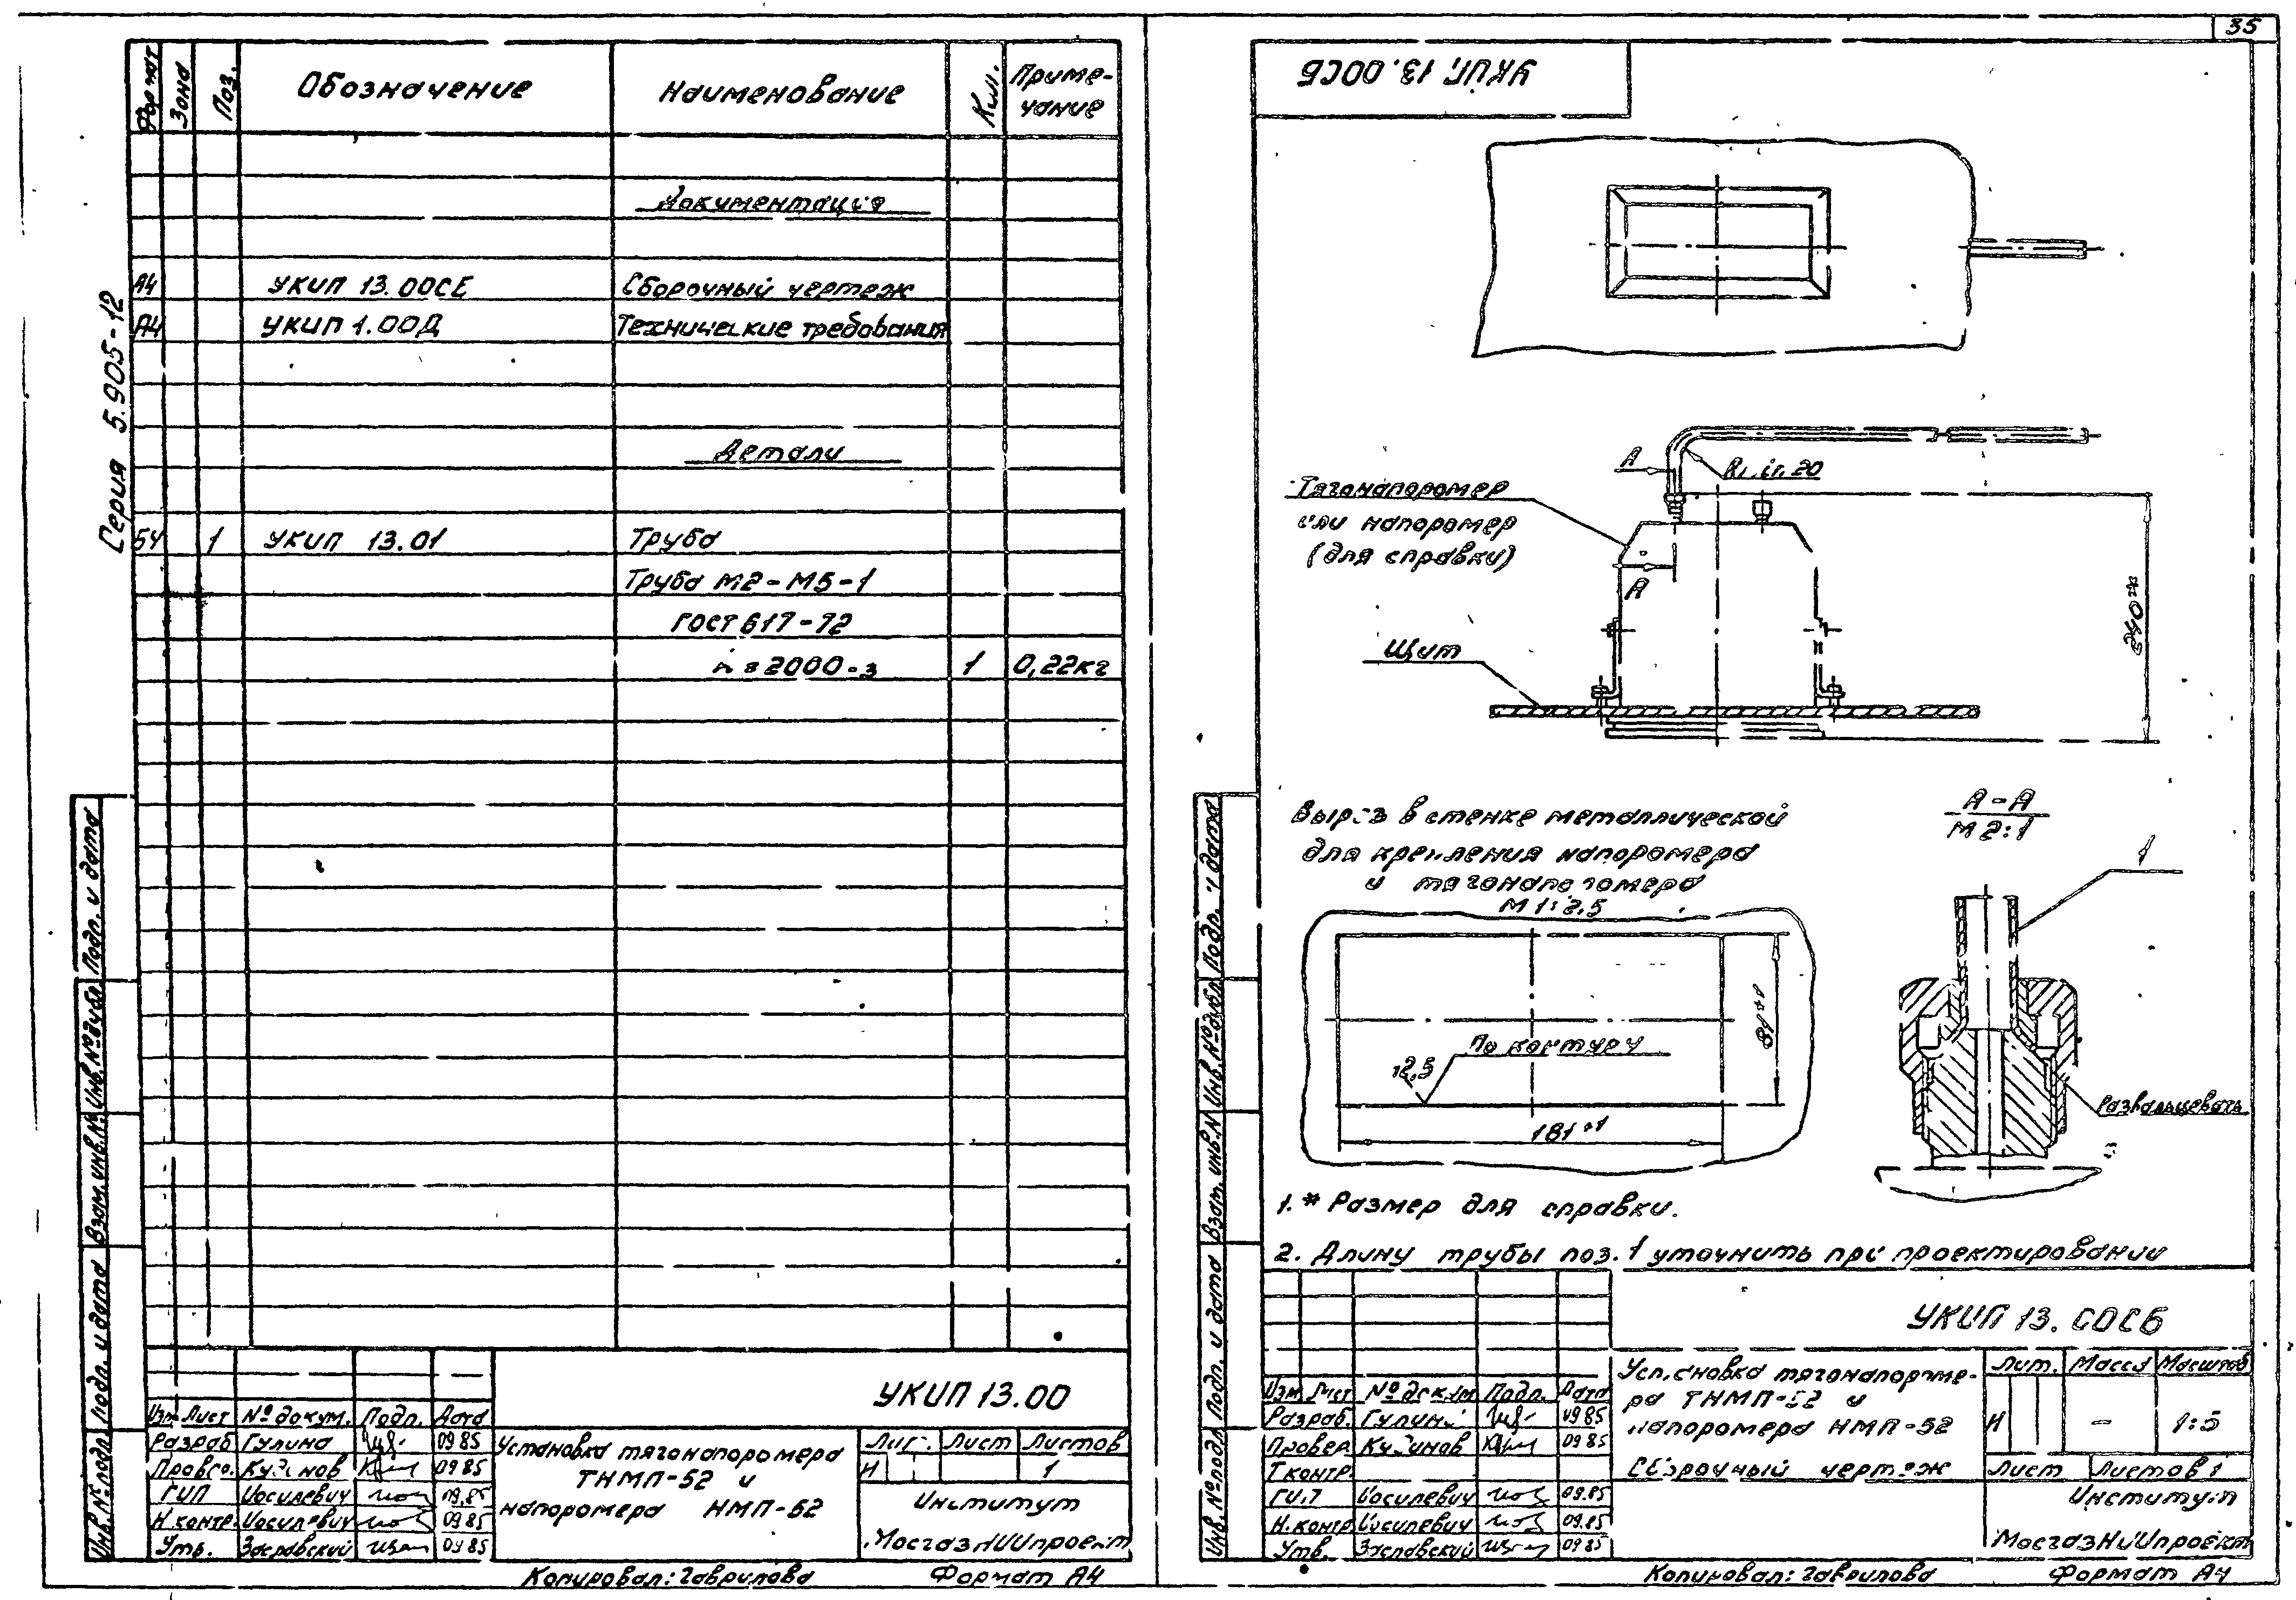 35
Серия 5.905-12
Формат Зона Поз. Обозначение Наименование Кол. Приме-
чание
Документация
А4 УКИП 13.00СБ Сборочный чертеж
А4 УКИП 1.00Д Технические требования
Детали
БЧ 1 УКИП 13.01 Труба
Труба М2-М5-1
ГОСТ 617-72
2000 1 0,22кг
Инв.№подл. Подп. и дата Взам.инв.№ Инв.№дубл. Подп. и дата
УКИП 13.00
Изм Лист № докум. Подп. Дата
Разраб Гулина 09.85
Провер. Кудинов 09.85
ГИП Иосилевич 09.85
Н.контр. Иосилевич 09.85
Утв. Заславский 09.85
Установка тягонапоромера
ТНМП-52 и
напоромера НМП-52
Лит. Лист Листов
И 1
Институт
МосгазНИИпроект
Копировал: Гаврилова Формат А4
УКИП 13.00СБ
А
R 20
Тягонапоромер
или напоромер
(для справки)
А
Щит
240*
Вырез в стенке металлической
для крепления напоромера
и тягонапоромера
М 1:2,5
По контуру
12,5
81+1
181+1
А-А
М 2:1
1
Развальцевать
1.* Размер для справки.
2. Длину трубы поз. 1 уточнить при проектировании
Инв.№подл. Подп. и дата Взам. инв.№ Инв.№дубл. Подп. и дата
УКИП 13.00СБ
Изм Лист № докум. Подп. Дата
Разраб. Гулина 09.85
Провер. Кудинов 09.85
Т контр.
ГИП Иосилевич 09.85
Н.контр. Иосилевич 09.85
Утв. Заславский 09.85
Установка тягонапороме-
ра ТНМП-52 и
напоромера НМП-52
Сборочный чертеж
Лит. Масса Масштаб
И - 1:5
Лист Листов 1
Институт
МосгазНИИпроект
Копировал: Гаврилова Формат А4